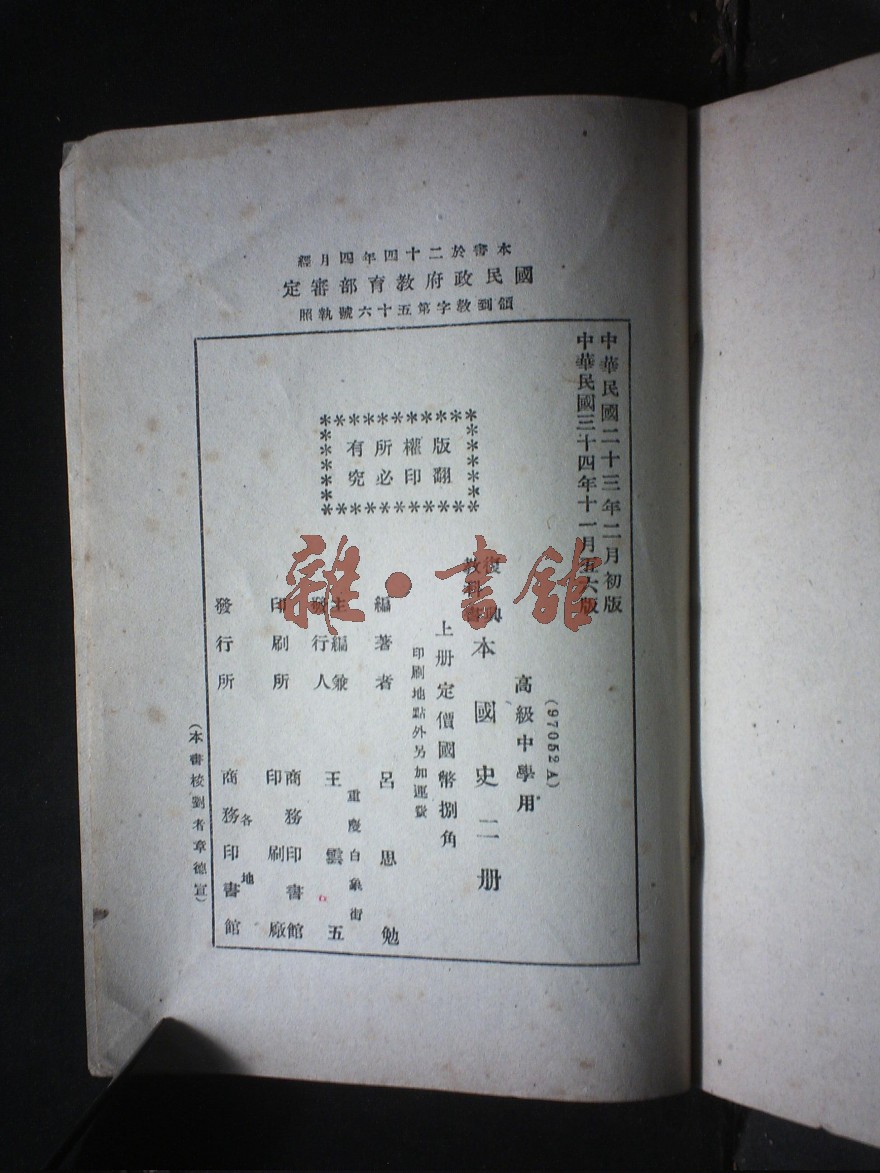 本書於二十四年四月經
國民政府教育部審定
領到教字第五十六號執照
中華民國二十三年二月初版
中華民國三十四年十一月五六版
版權所有
翻印必究
(97052A)
高級中學用
復興
教科書
本國史二册
上册定價國幣捌角
印刷地點外另加運費
編著者 呂思勉
重慶白象街
主編兼
發行人
王雲五
印刷所
商務印書館
印刷廠
各地
發行所 商務印書館
(本書校對者章德宣)
雜·書館